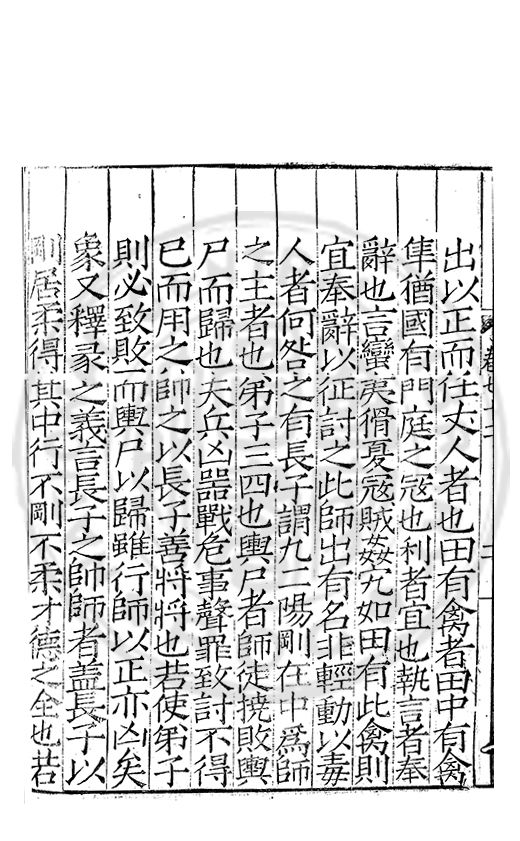 出以正而任丈人者也田有禽者田中有禽
隼猶國有門庭之冦也利者宜也執言者奉
辭也言蠻夷猾憂冦賊姦宄如田有此禽則
宜奉辭以征討之此師出有名非輕動以毒
人者何咎之有長子謂九二陽剛在中爲師
之主者也弟子三四也輿尸者師徒撓敗輿
尸而歸也夫兵凶器戰危事聲罪致討不得
已而用之帥之以長子善將將也若使弟子
則必致敗而輿尸以歸雖行師以正亦凶矣
象又釋彖之義言長子之帥師者蓋長子以
剛居柔得其中行不剛不柔才德之全也若